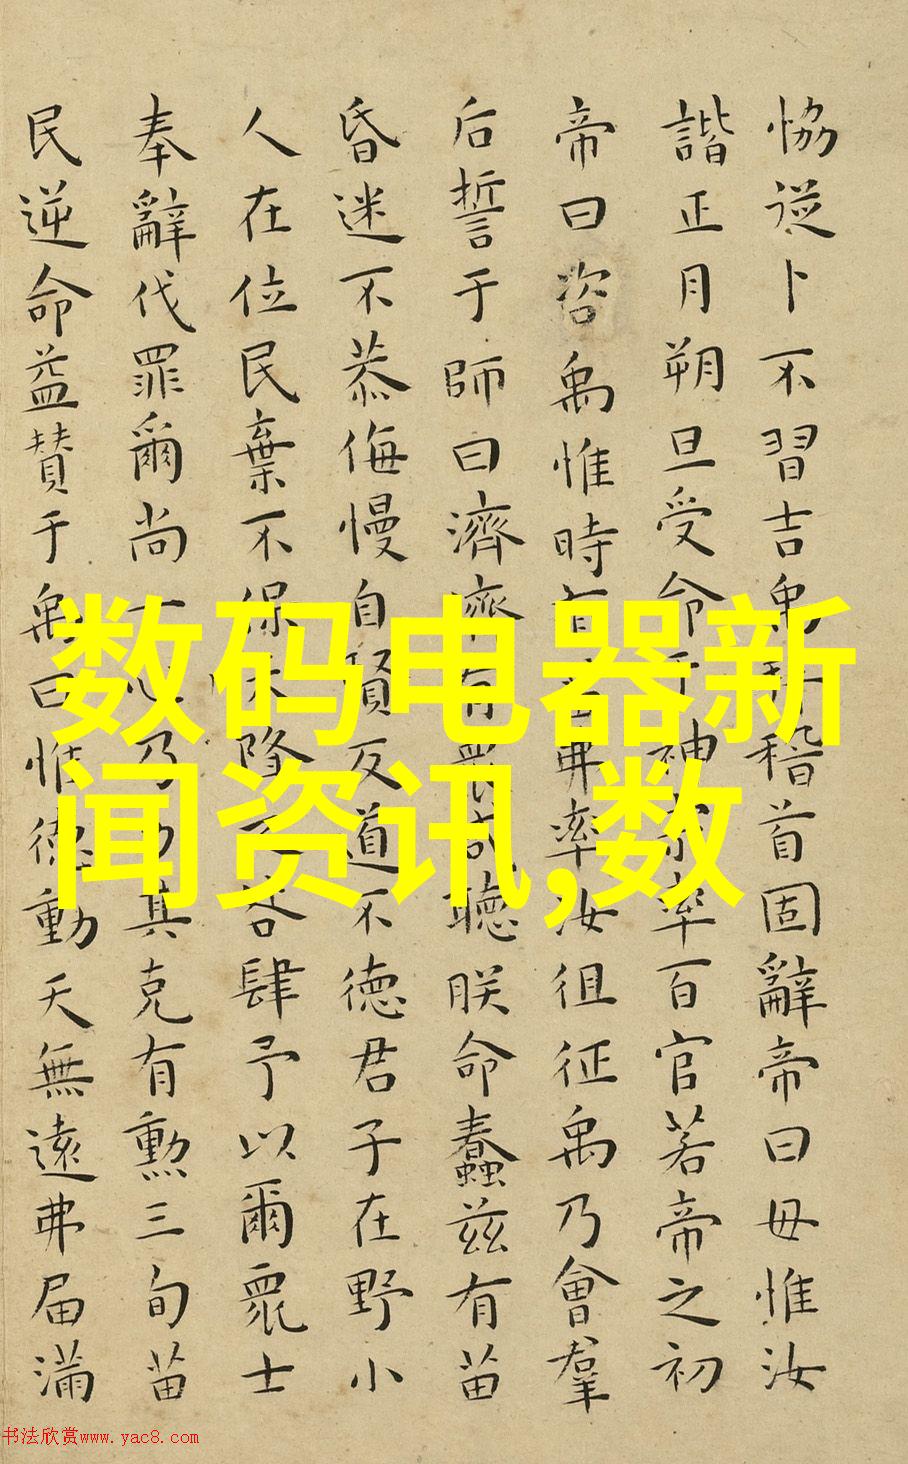 恊從卜不習吉禹拜稽首固辭帝曰毋惟汝
諧正月朔旦受命于神宗率百官若帝之初
帝曰咨禹惟時有苗弗率汝徂征禹乃會羣
后誓于師曰濟濟有眾咸聽朕命蠢兹有苗
昏迷不恭侮慢自賢反道不德君子在野小
人在位民棄不保天降之咎肆予以爾眾士
奉辭伐罪爾尚一心乃力其克有勲三旬苗
民逆命益賛于禹曰惟德動天無遠弗届滿
数码电器新
闻资讯,数
书法欣赏www.yac8.com